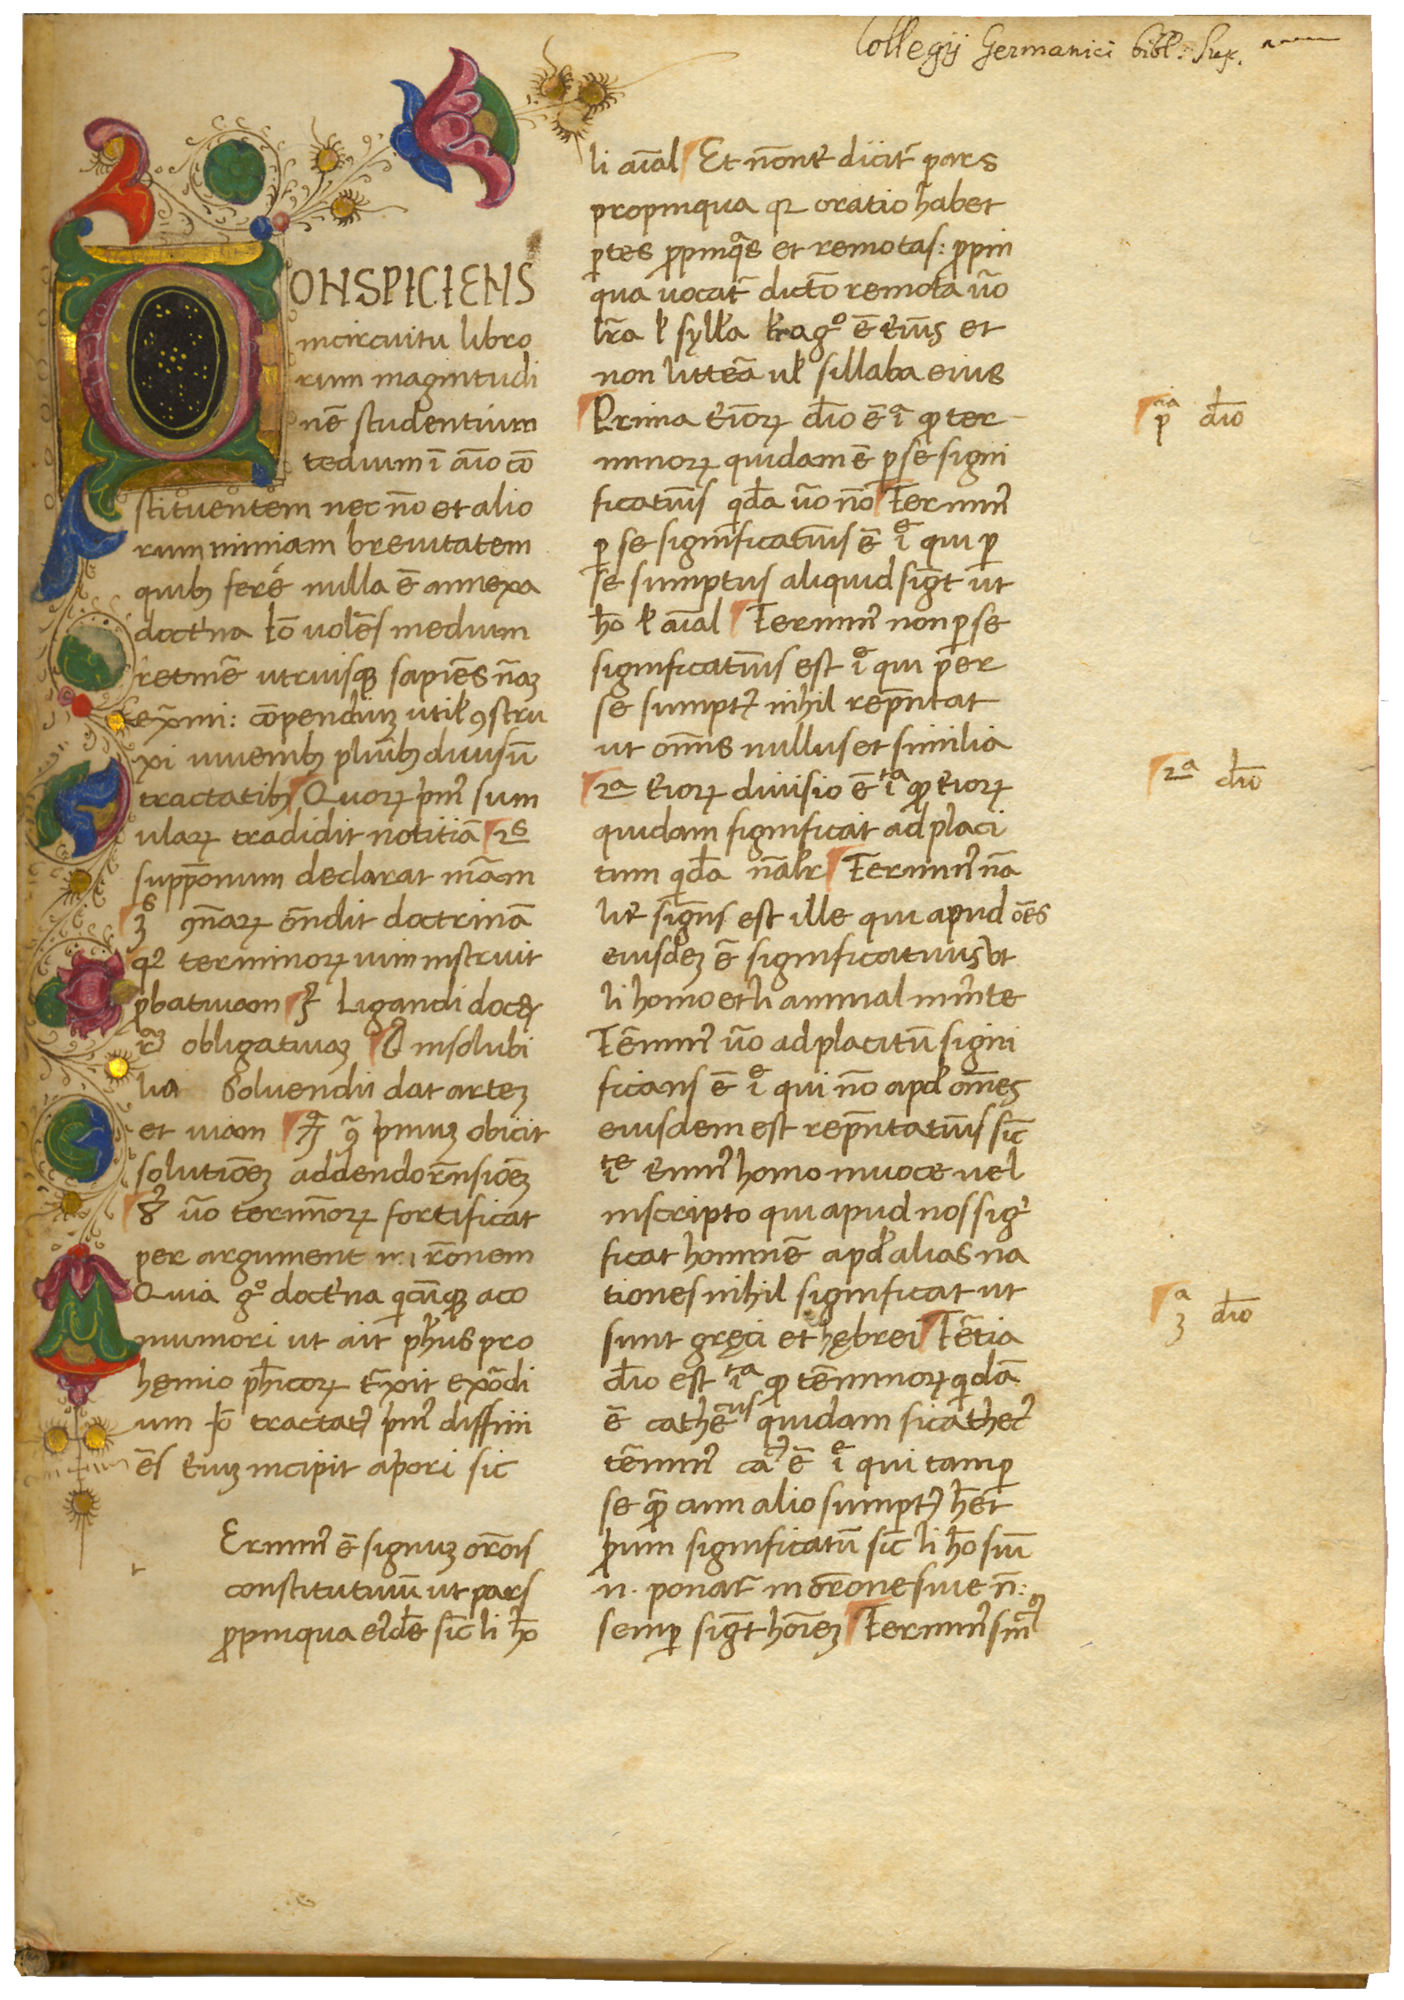 Collegij Germanici bibl: Sup.
CONSPICIENS
incircuitu libro
rum magnitudi
nē studentium
tedium ī aīo cō
stituentem necnō et alio
rum nimiam breuitatem
quibꝫ feré nulla ē annexa
doctͥna Iō uolēs medium
retinē͛ utriusqꝫ sapiēs nāꝫ
exͣmi: cōpendiuꝫ utiłꝯstru
xi iuuenibꝫ pluribꝫ diuisū
tractatibꝫ Quoꝝ pͥmꝰ sum
ulaꝝ tradidit notitiā 2ˢ
suppōnum declarat mām
3ˢ ꝯn̄aꝝ on̄dit doctrinā
4ꝰ terminoꝝ uim instruit
ꝓbatiuam 5ꝰ Ligandi docꝫ
obligatiuaꝫ 6ꝰ insolubi
lia Soluendii dat arteꝫ
et uiam 7ꝰ pͥmuꝫ obicit
solutiōeꝫ addendo rn̄siōeꝫ
8ꝰ ūo termīoꝝ fortificat
per argument rōnem
Quia gͦ doctͥna qͣcūqꝫ aco
muniori ut ait ph̄us pro
hęmio ph̄icoꝝ trͣxit exōdi
um Iō tractatꝰ pͥmꝰ diffini
ēs tͥiuꝫ incipit apͥori sic
Erminꝰ ē signuꝫ orōis
constitutiuū ut pars
ꝓpinqua eiꝰdē sic̄ li hō
li aīal Et nōnt͛ dicit᷑ pars
propinqua qꝛ oratio habet
ꝑtes ꝓpinqͣs et remotas: ꝓpin
qua uocat᷑ dictō remota ūo
lrā ł syłła ē eiūs et
non litterā uł sillaba eius
Prima t͛ioꝝ dīo ē iͣ ꝙ ter
minoꝝ quidam ē ꝑ se signi
ficatiūs qͥdā ūo nō Terminꝰ
ꝑ se significatiūs ē iͤ qui ꝑ
se sumptus aliquid sigt̄ ut
hō ł aīal Terminꝰ non ꝑ se
significatiūs est iͤ qui per
se sumptꝰ nihil rep̄ntat
ut om̄is nullus et similia
2ᵃ t͛ioꝝ diuisio ē itᵃ ꝙ t͛ioꝝ
quidam significat ad placi
tum qͥdā nałr Terminꝰ nā
lit͛ sign̄s est ille qui apud oēs
eiusdeꝫ ē significatiuus ut
li homo et li animal in mn̄te
Tēminꝰ ūo ad placitū signi
ficans ē iͤ qui nō apđ om̄es
eiusdem est rep̄ntatiūs sic̄
iste t͛minꝰ homo in uoce uel
inscripto qui apud nos sigͥ
ficat hominē apđ alias na
tiones nihil significat ut
sunt gręci et hębrei Tētia
dīo est itᵃ ꝙ tēminoꝝ qͥdā
ē cathēcus quidam sicathecꝰ
tēminꝰ caͭꝰ ē iͤ qui tam ꝑ
se ꝙ cum alio sumptꝰ h̄et
ꝓium significatū sic̄ li hō siū
n. ponat᷑ in orōne siue n̄:
semꝑ sigt̄ hoīeꝫ Terminꝰ sinͨꝰ
pᵃ dīo
2ᵃ dīo
3ᵃ dīo